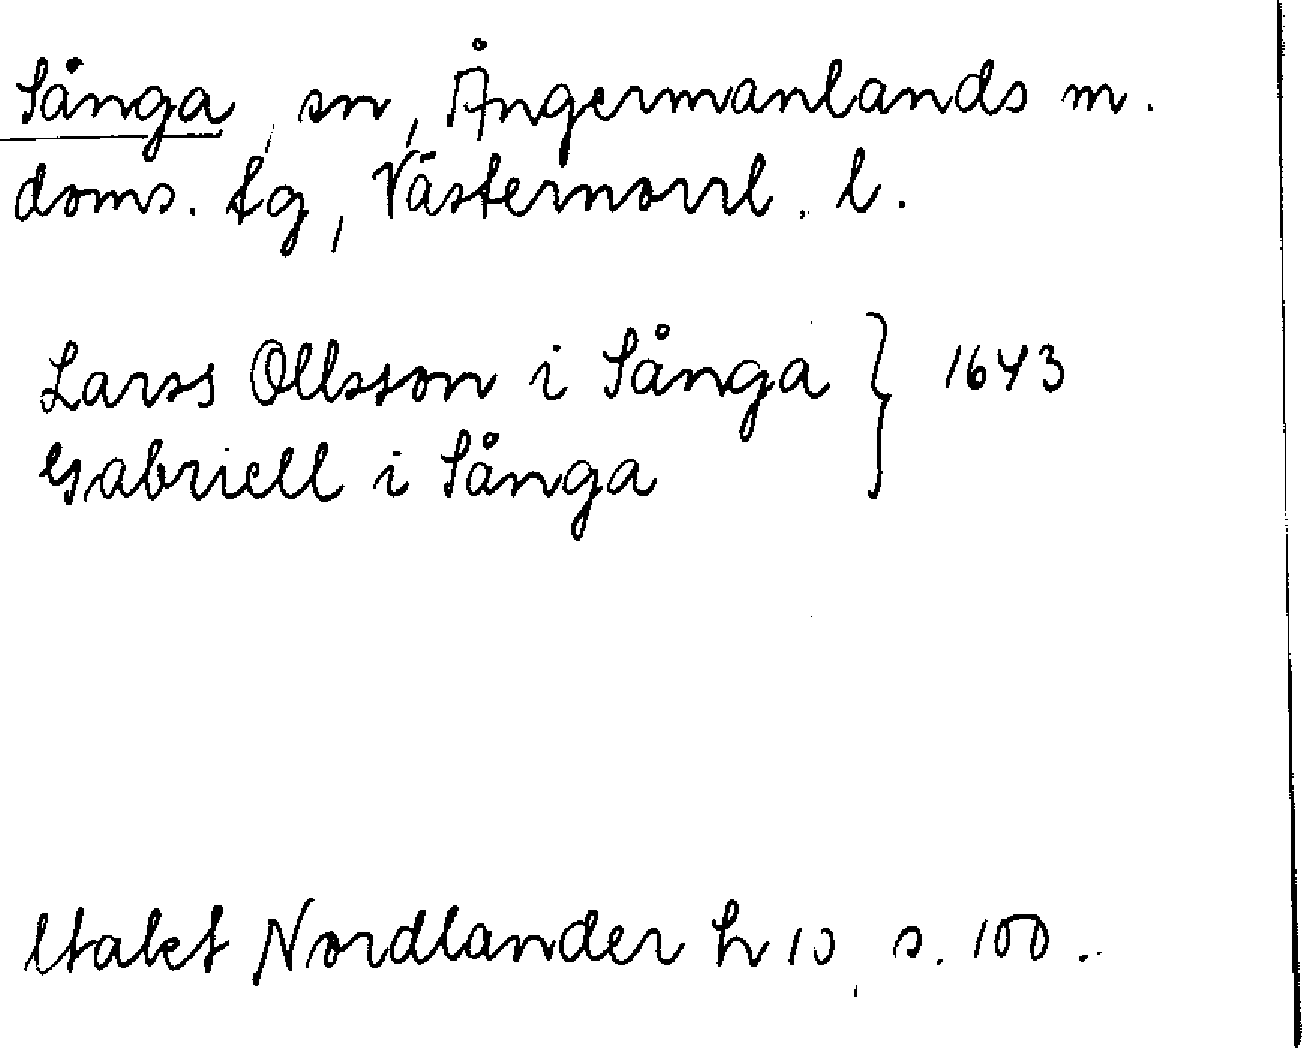 Sånga, sn, Ångermanlands m.
doms. tg, Västernorrl. l.
Larss Ollsson i Sånga } 1643
Gabriell i Sånga
Nordlander h 10, s. 100.